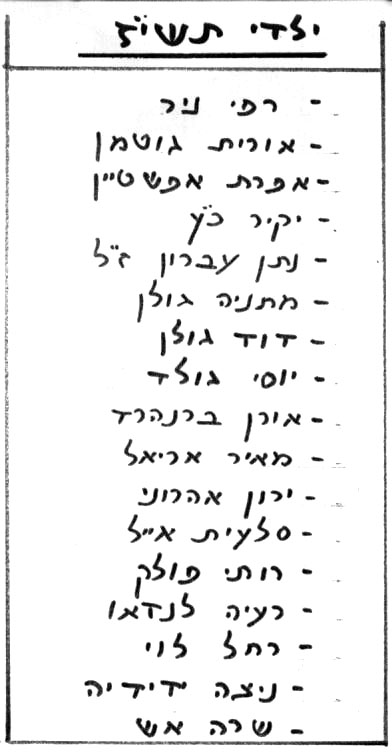 ילדי תשי"ז
- רפי ניר
- אורית גוטמן
- אפרת אפשטיין
- יקיר כ"ץ
- נתן עברון ז"ל
- מתניה גולן
- דוד גולן
- יוסי גולד
- אירן ברנהרד
- מאיר אריאל
- ירון אהרוני
- סלעית א״ל
- רותי פולק
- רעיה לנדאו
- רחל לוי
- ניצה ידידיה
- שרה אש